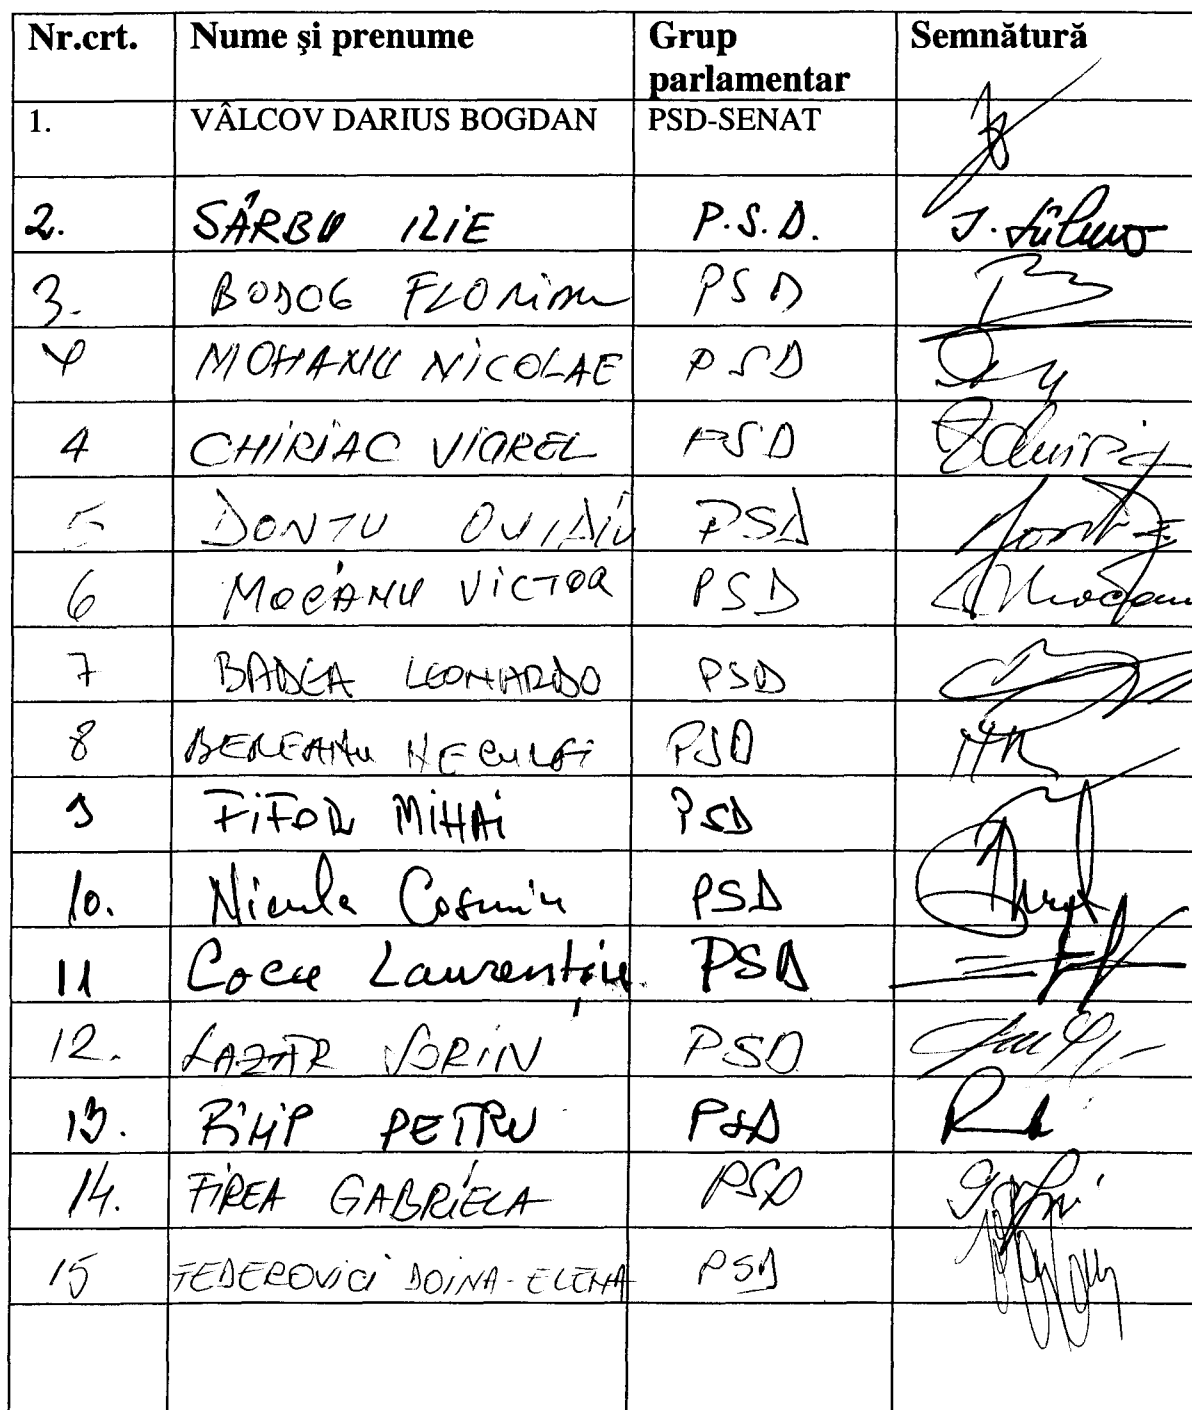 Nr.crt. Nume şi prenume Grup parlamentar Semnătură
1. VÂLCOV DARIUS BOGDAN PSD-SENAT
2. SÂRBU ILIE P.S.D.
3. BODOG FLORIAN PSD
4 MOHANU NICOLAE PSD
4 CHIRIAC VIOREL PSD
5 DONTU OVIDIU PSD
6 MOCANU VICTOR PSD
7 BADEA LEONARDO PSD
8 BEREANU NECULAI PSD
9 FIFOR MIHAI PSD
10. Nicula Cosmin PSD
11 Coca Laurenţiu PSD
12. LAZAR SORIN PSD
13. FILIP PETRU PSD
14. FIREA GABRIELA PSD
15 FEDEROVICI DOINA-ELENA PSD